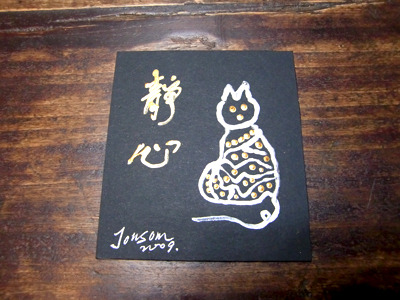 静
心
Jonsom
2009.